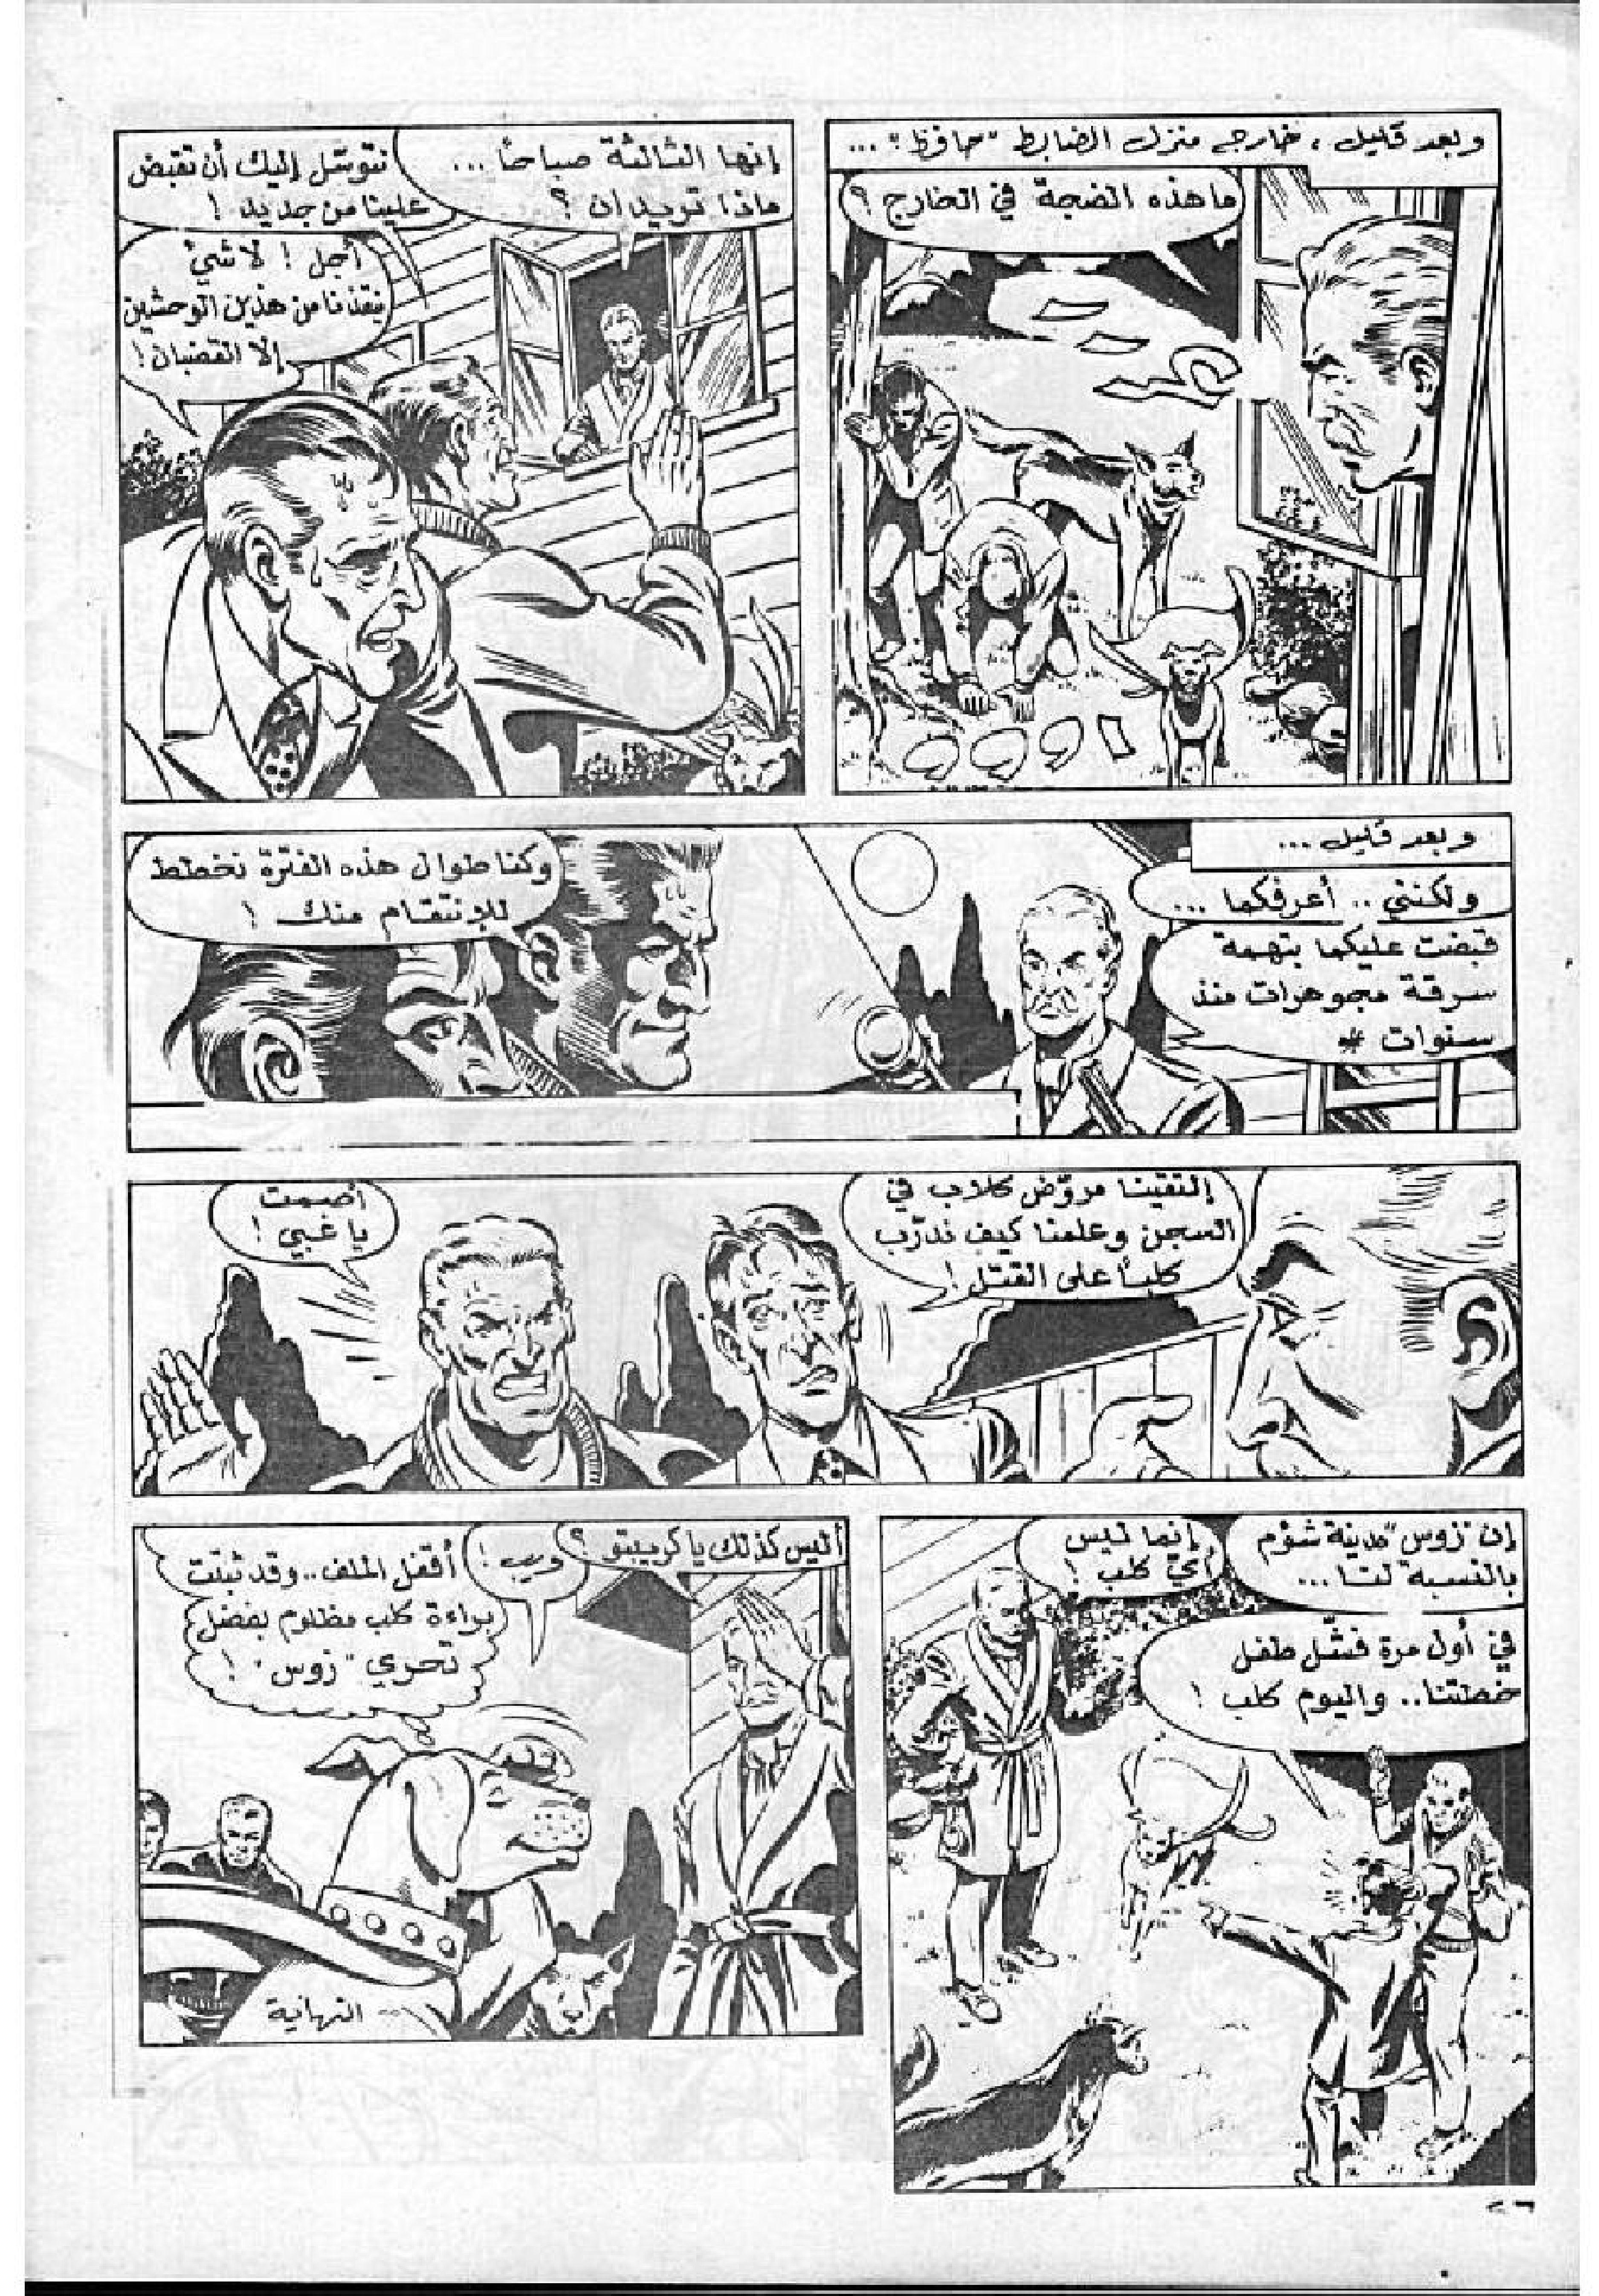 وبعد قليل ، خارج منزل الضابط "حافظ" ...
ما هذه الضجة في الخارج ؟
إنها الثالثة صباحاً ...
ماذا تريدان ؟
نتوسّل إليك أن تقبض
علينا من جديد !
أجل ! لا شيء
ينقذنا من هذين الوحشين
إلا القضبان !
وبعد قليل ...
ولكنني .. أعرفكما ...
قبضت عليكما بتهمة
سرقة مجوهرات منذ
سنوات *
وكنا طوال هذه الفترة نخطط
للإنتقام منك !
إلتقينا مروّض كلاب في
السجن وعلمنا كيف ندرّب
كلباً على القتل !
أصمت
يا غبي !
إن "زوس" مدينة شؤم
بالنسبة لنا ...
في أول مرة فشّل طفل
خطتنا .. واليوم كلب !
إنما ليس
أيّ كلب !
أليس كذلك يا كريبتو ؟
ورب !
أقفل الملف .. وقد ثبتت
براءة كلب مظلوم بفضل
تحري "زوس" !
النهاية